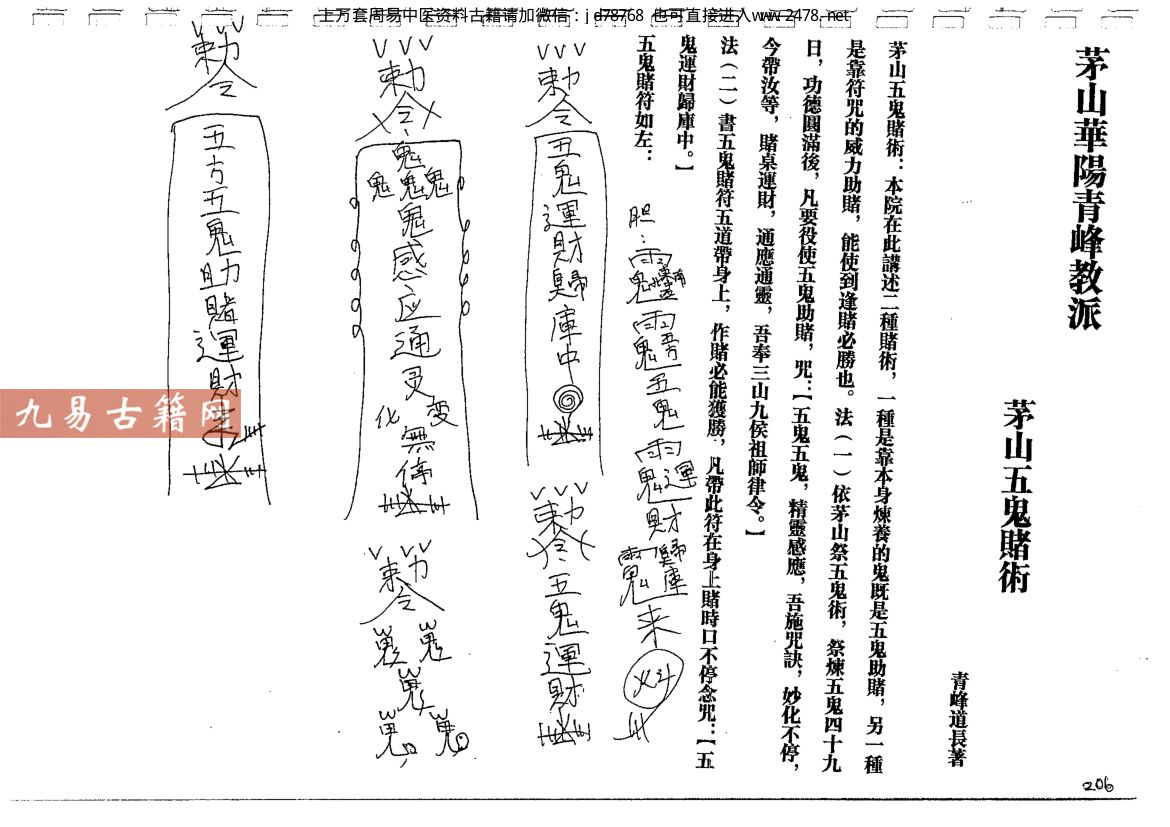 上万套周易中医资料古籍请加微信：jd78768 也可直接进入www.2478.net
茅山華陽青峰教派
茅山五鬼賭術
青峰道長著
茅山五鬼賭術：本院在此講述二種賭術，一種是靠本身煉養的鬼既是五鬼助賭，另一種
是靠符咒的威力助賭，能使到逢賭必勝也。法（一）依茅山祭五鬼術，祭煉五鬼四十九
日，功德圓滿後，凡要役使五鬼助賭，咒：【五鬼五鬼，精靈感應，吾施咒訣，妙化不停，
今帶汝等，賭桌運財，通應通靈，吾奉三山九侯祖師律令。】
法（二）書五鬼賭符五道帶身上，作賭必能獲勝，凡帶此符在身上賭時口不停念咒：【五
鬼運財歸庫中。】
五鬼賭符如左：
胆
五鬼
財
来
勅令五鬼運財歸庫中
勅令五鬼運財
勅令鬼鬼鬼鬼鬼感应通灵变化無停
勅令
勅令五方五鬼助賭運財来
九易古籍网
206